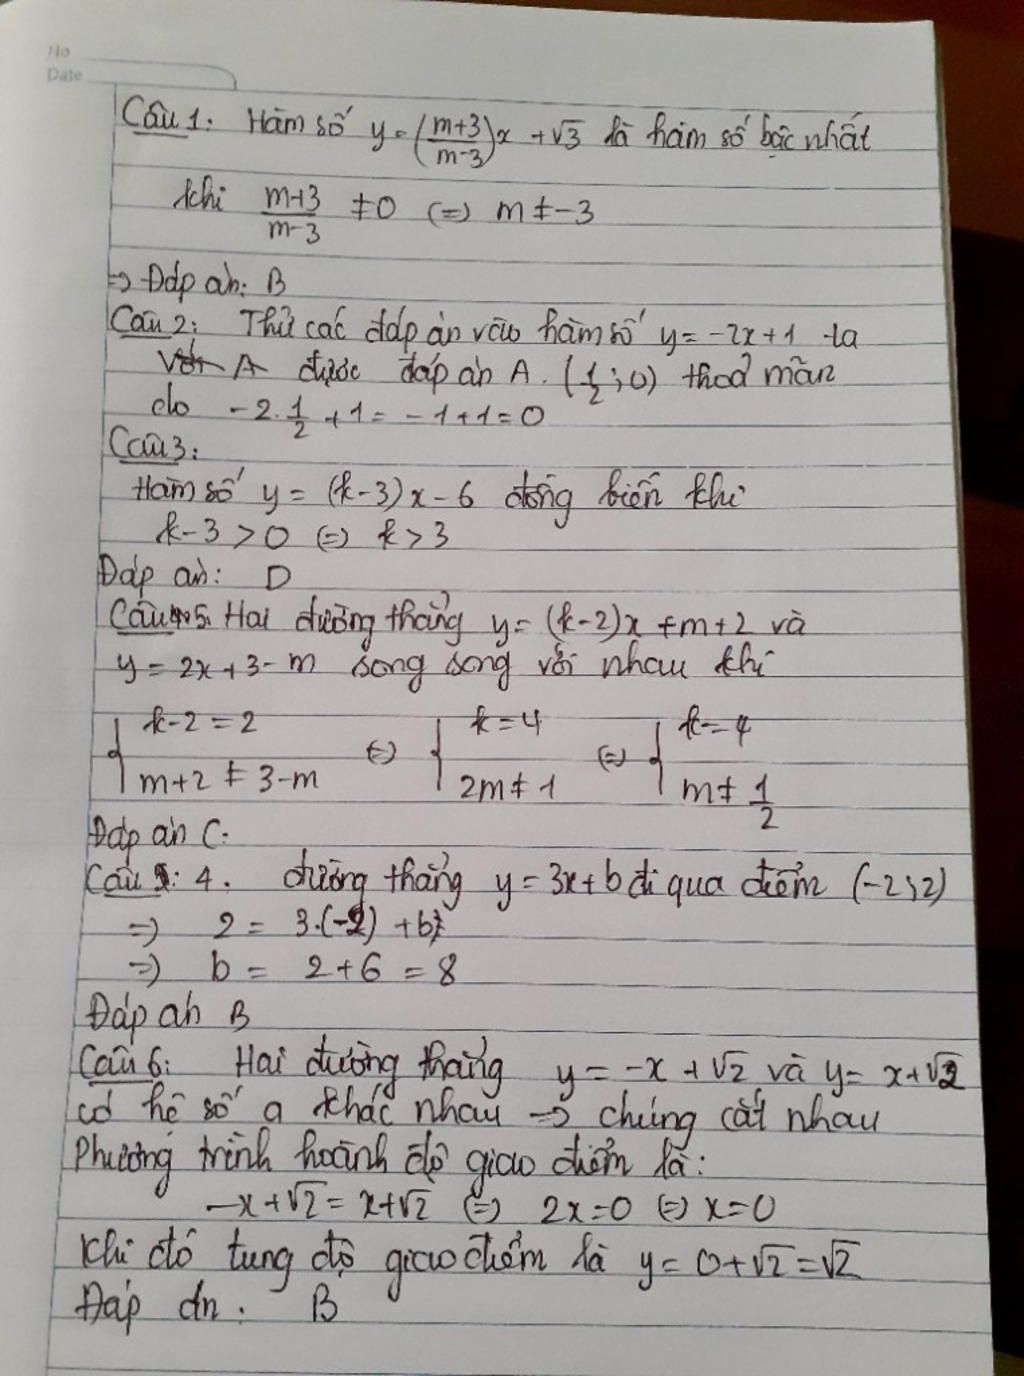 No
Date
Câu 1: Hàm số y = (m+3/m-3)x + √3 là hàm số bậc nhất
khi m+3/m-3 ≠ 0 (=) m ≠ -3
=) Đáp án: B
Câu 2: Thử các đáp án vào hàm số y = -2x+1 ta
được đáp án A. (1/2; 0) thoả mãn
do -2.1/2 + 1 = -1+1=0
Câu 3:
Hàm số y = (k-3)x - 6 đồng biến khi
k-3 > 0 (=) k > 3
Đáp án: D
Câu 5. Hai đường thẳng y = (k-2)x + m+2 và
y = 2x + 3 - m song song với nhau khi
{ k-2 = 2 (=) { k = 4 (=) { k = 4
m+2 ≠ 3-m 2m ≠ 1 m ≠ 1/2
Đáp án C.
Câu 4. đường thẳng y = 3x + b đi qua điểm (-2; 2)
=) 2 = 3.(-2) + b
=) b = 2+6 = 8
Đáp án B
Câu 6: Hai đường thẳng y = -x + √2 và y = x+√2
có hệ số a khác nhau => chúng cắt nhau
Phương trình hoành độ giao điểm là:
-x + √2 = x+√2 (=) 2x=0 (=) x=0
Khi đó tung độ giao điểm là y = 0+√2 = √2
Đáp án. B